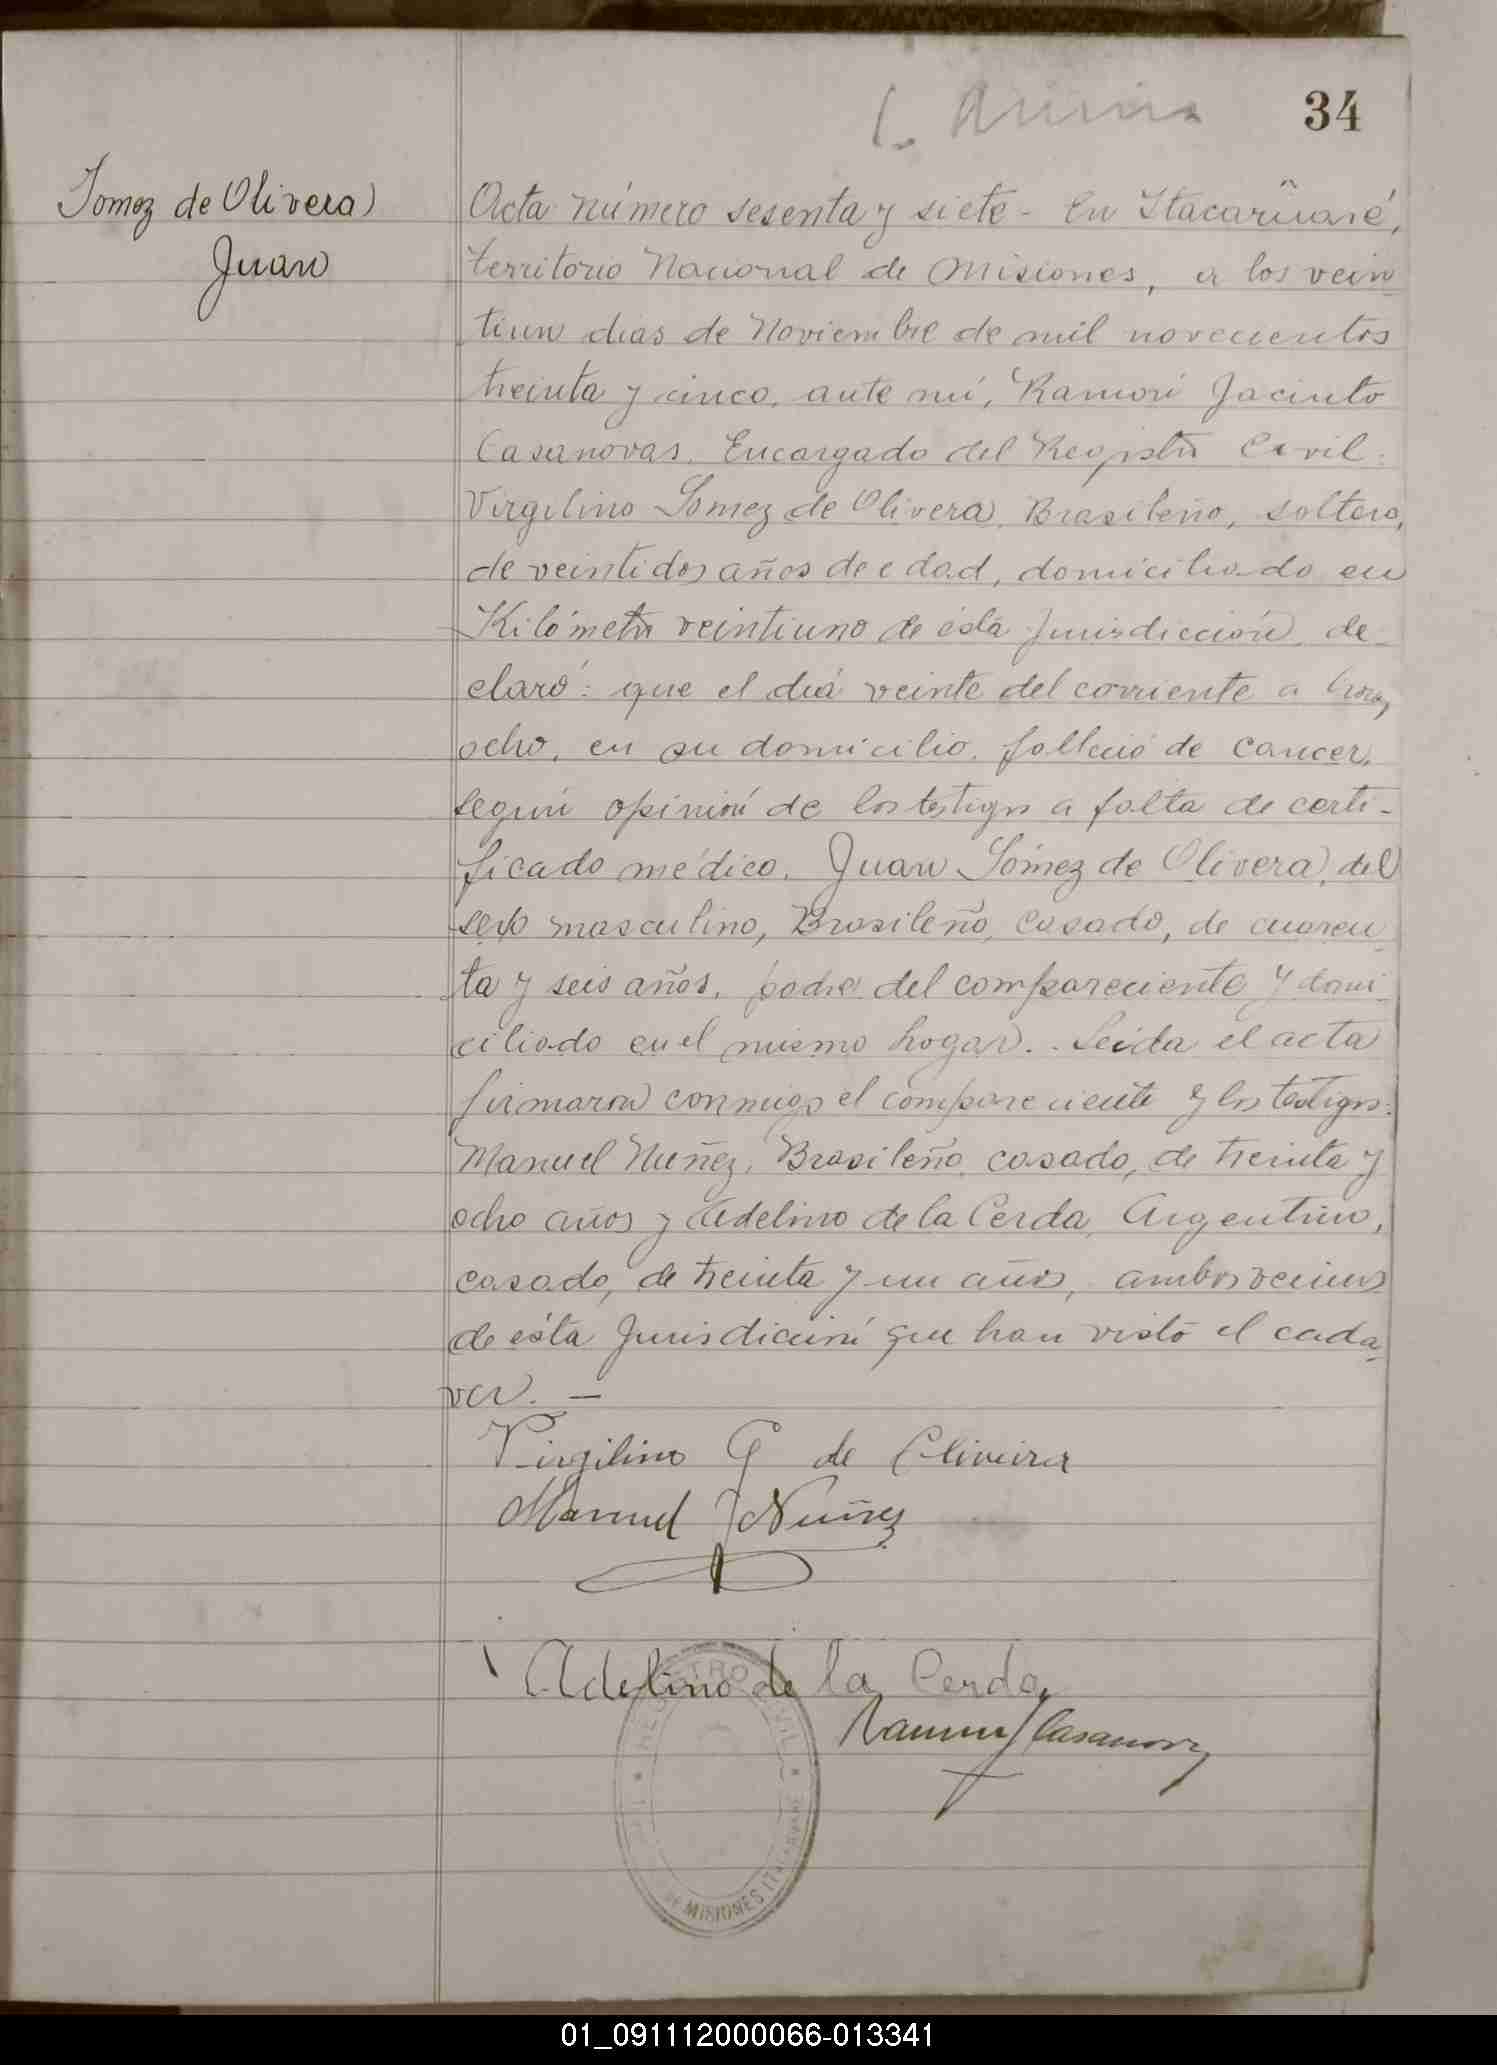 34
Gomez de Olivera
Juan
Acta número sesenta y siete - En Itacaruaré,
territorio Nacional de Misiones, a los vein
tiun dias de Noviembre de mil novecientos
treinta y cinco, ante mí, Ramón Jacinto
Casanovas, Encargado del Registro Civil:
Virgilino Gomez de Olivera, Brasileño, soltero,
de veintidos años de edad, domiciliado en
Kilómetro veintiuno de ésta Jurisdicción, de-
claró: que el día veinte del corriente a horas
ocho, en su domicilio, falleció de cancer,
según opinión de los testigos a falta de certi-
ficado médico, Juan Gómez de Olivera, del
sexo masculino, Brasileño, casado, de cuaren
ta y seis años, padre del compareciente y domi-
ciliado en el mismo hogar. - Leída el acta
firmaron conmigo el compareciente y los testigos:
Manuel Nuñez, Brasileño, casado, de treinta y
ocho años y Adelino de la Cerda, Argentino,
casado, de treinta y un años, ambos vecinos
de ésta Jurisdicción que han visto el cada-
ver. —
Virgilino G de Oliveira
Manuel J Nuñez
Adelino de la Cerda
Ramón J Casanovas
REGISTRO CIVIL
DE MISIONES ITACARUARE
01_091112000066-013341